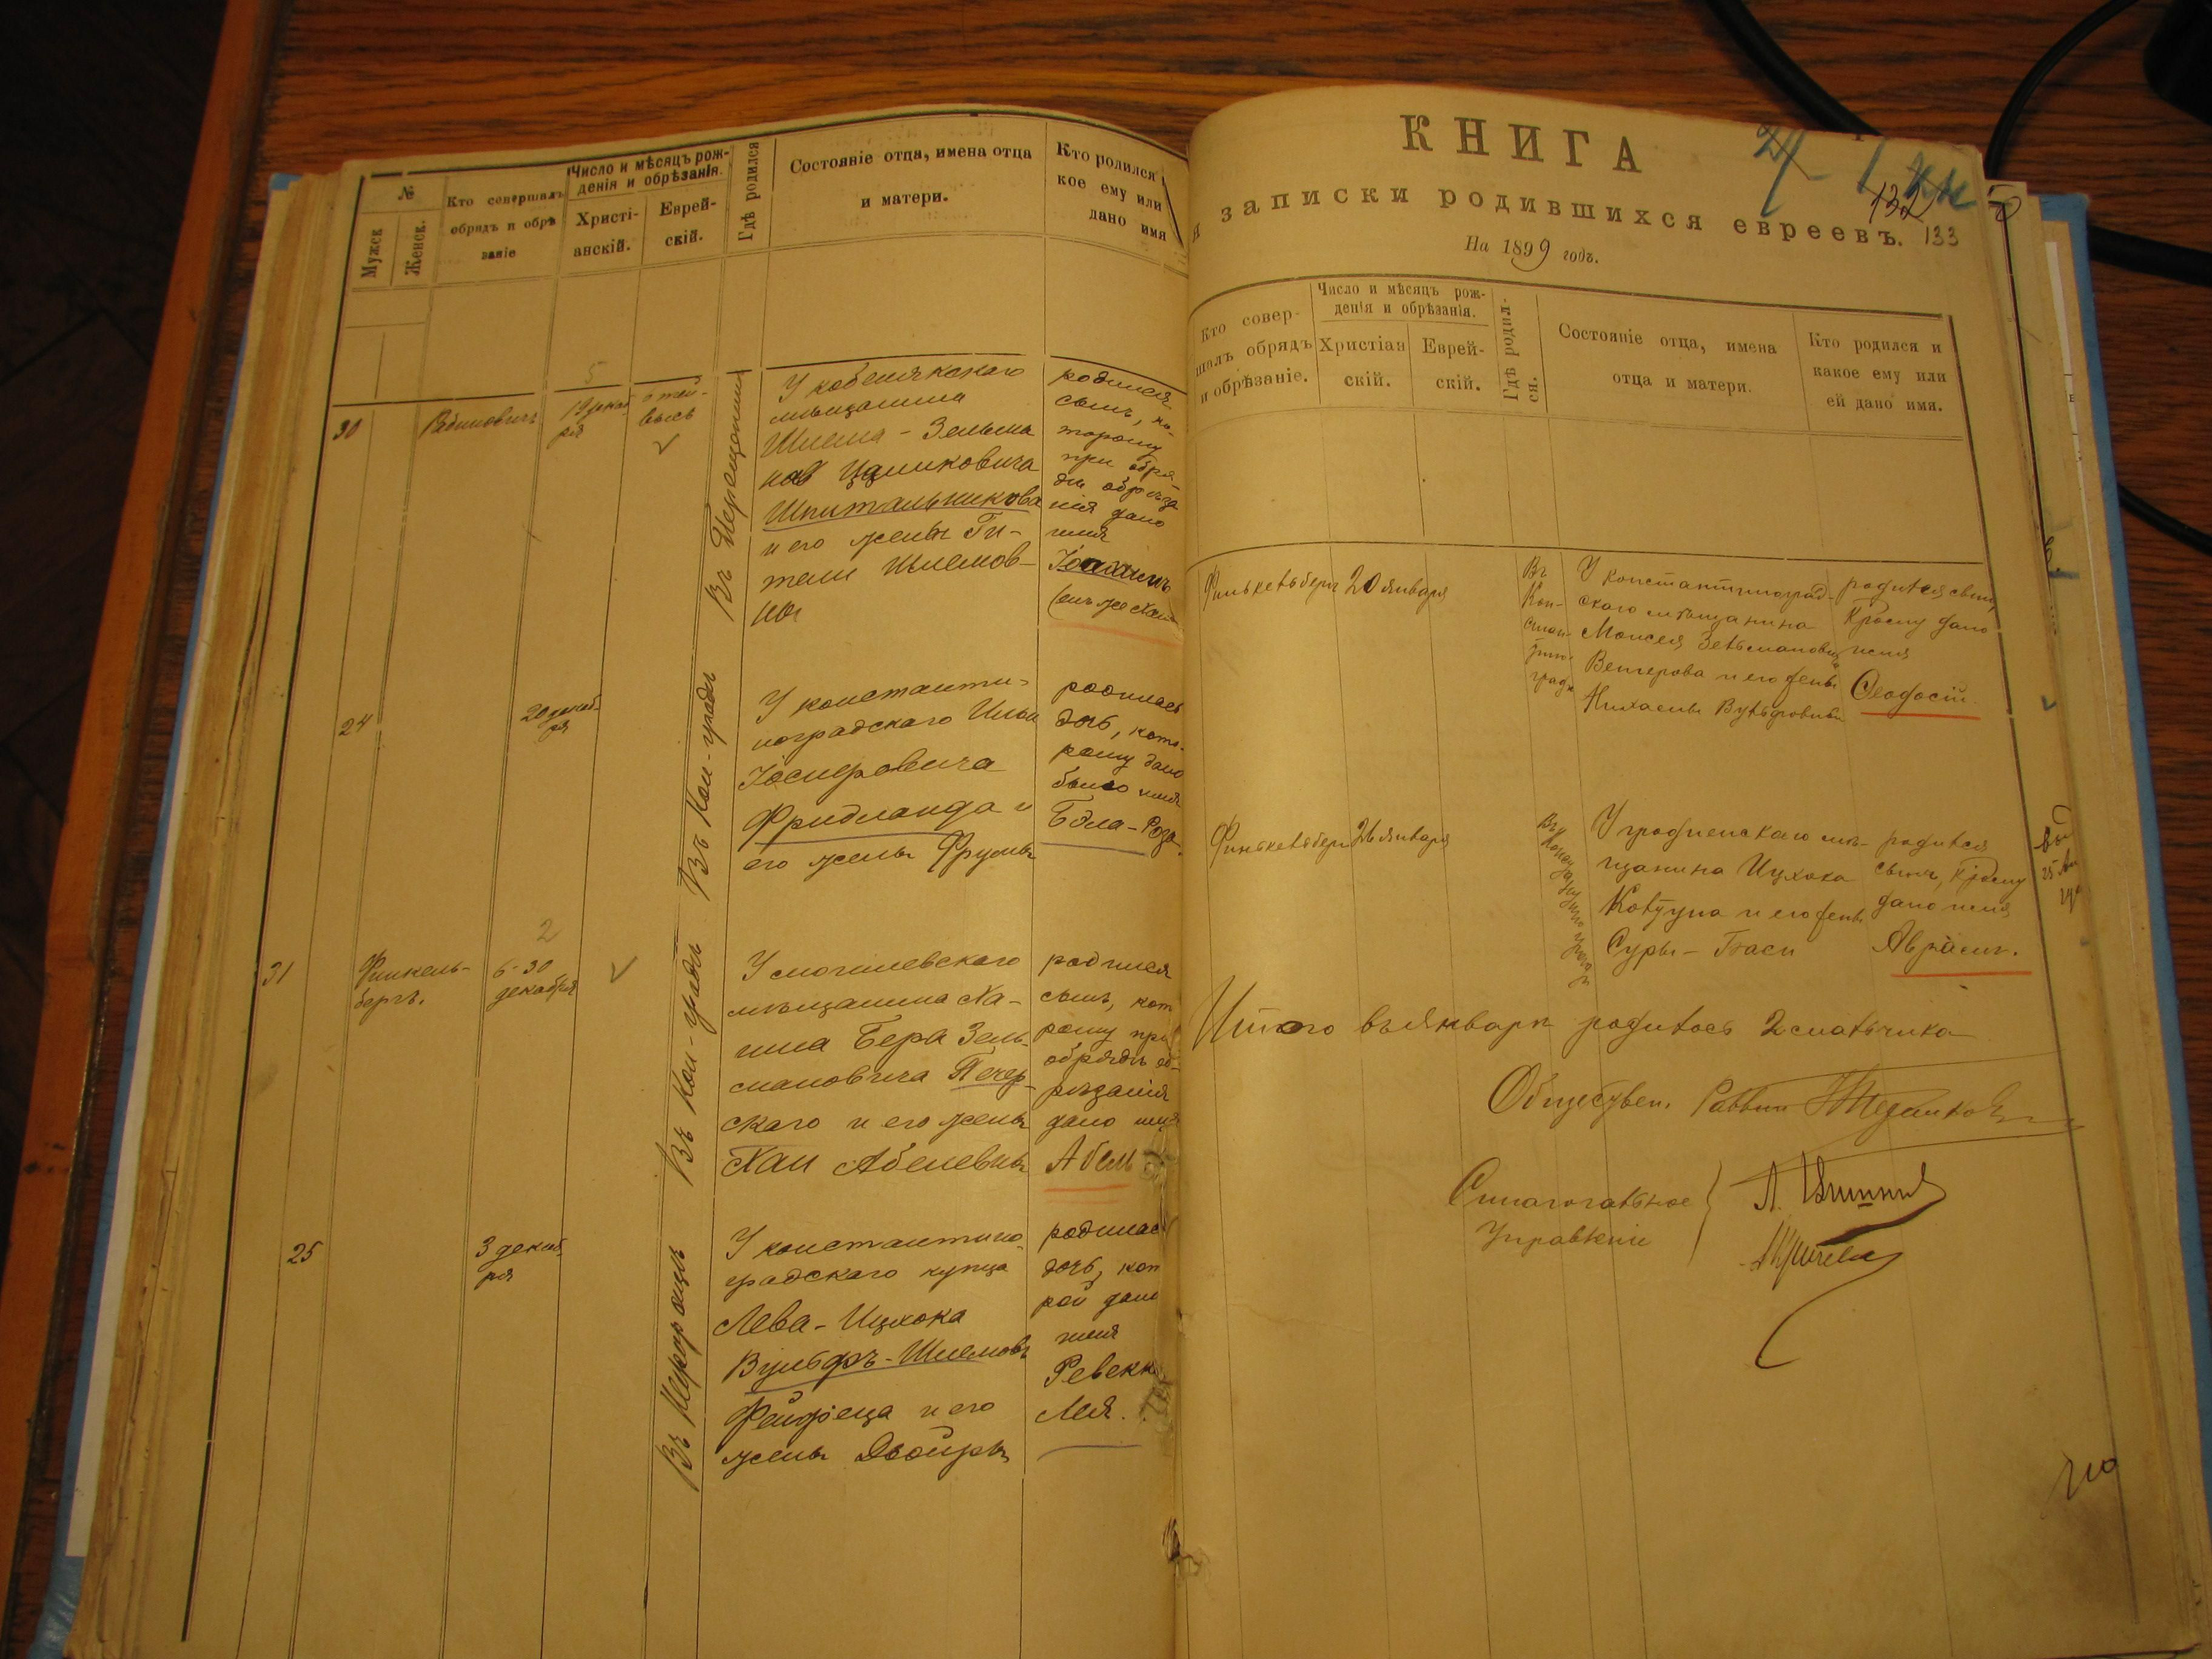 №
Мужск
Женск.
Кто совершалъ
обрядъ и обрѣ
заніе
Число и мѣсяцъ рож-
денія и обрѣзанія.
Христі-
анскій.
Еврей-
скій.
Гдѣ родился
Состояніе отца, имена отца
и матери.
Кто родился
кое ему или
дано имя
5
30
Рабиновичъ
19 декаб
ря
Въ
У кобелякскаго
мѣщанина
Шлема - Зельма
Ицуковича
Шпитальникова
и его жены Ги-
тели Шлемов-
ны
родился
сынъ, ко-
торому
при обря-
дѣ обрѣза
нія дано
имя
24
20 декаб-
ря
Въ Кон-градѣ
У константи-
ноградскаго Ильи
Іосифовича
Фридланда и
его жены Фрумы
родилась
дочь, кото-
рому дано
было имя
Бэла-Роза.
2
31
Финкель-
бергъ.
6-30
декабря
Въ Кон-градѣ
У могилевскаго
мѣщанина Ха-
има Бера Зель-
мановича Печер-
скаго и его жены
Хаи Абелевны
родился
сынъ, кот
рому при
обрядѣ об-
рѣзанія
дано имя
Абель
25
3 декаб
ря
У константино-
градскаго купца
Лева-Ицхока
Вульфъ-Шлемовъ
и его
жены Двойры
родилась
дочь, кот
рой дано
имя
Ревекк
Лея.
КНИГА
записки родившихся евреевъ.
132
133
На 1899 годъ.
Кто совер-
шалъ обрядъ
и обрѣзаніе.
Число и мѣсяцъ рож-
денія и обрѣзанія.
Христіан
скій.
Еврей-
скій.
Гдѣ родил-
ся.
Состояніе отца, имена
отца и матери.
Кто родился и
какое ему или
ей дано имя.
Финкельберг 20 января
Въ
Кон-
стан-
тино-
градѣ
У константиноград-
скаго мѣщанина
Моисея Зельманович
Венгерова и его жены
Михаели Вульфовны
родился сынъ,
Крому дано
имя
Ѳеодосій.
Финкельберг 26 января
Въ Константиноградѣ
У гродненскаго мѣ-
щанина Ицхока
Ковтуна и его жены
Суры-Баси
родился
сынъ, крому
дано имя
Абрамъ.
Итого въ январѣ родилось 2 мальчика
Обществен. Раввин
Синагогальное
Управленіе